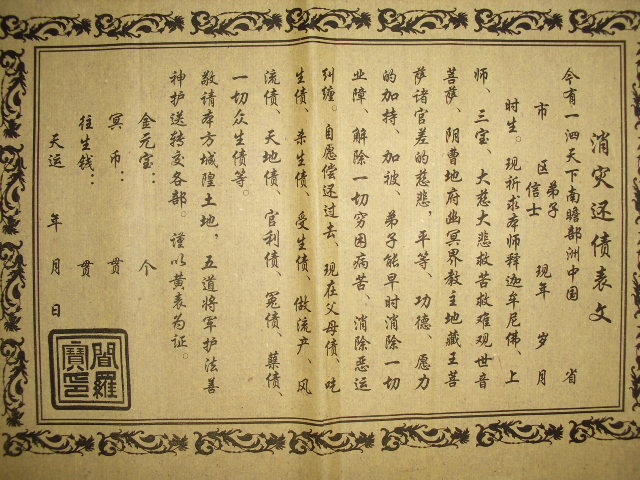 消灾还债表文
今有一泗天下南瞻部洲中国 省
市 区 弟子 信士 现年 岁 月
时生。现祈求本师释迦牟尼佛、上
师、三宝、大慈大悲救苦救难观世音
菩萨、阴曹地府幽冥界教主地藏王菩
萨诸官差的慈悲，平等、功德、愿力
的加持、加被、弟子能早时消除一切
业障、解除一切穷困病苦、消除恶运
纠缠。自愿偿还过去、现在父母债、吃
生债、杀生债、受生债、做流产、风
流债、天地债、官利债、冤债、药债、
一切众生债等。
敬请本方城隍土地、五道将军护法善
神护送转交各部。谨以黄表为证。
金元宝： 个
冥币： 贯
往生钱： 贯
天运 年 月 日
閻羅寶印